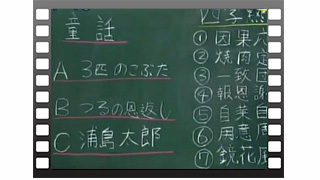 童話
A 3匹のこぶた
B つるの恩返し
C 浦島太郎
四字熟
① 因果応
② 焼肉定
③ 一致団
④ 報恩謝
⑤ 自業自
⑥ 用意周
⑦ 鏡花風